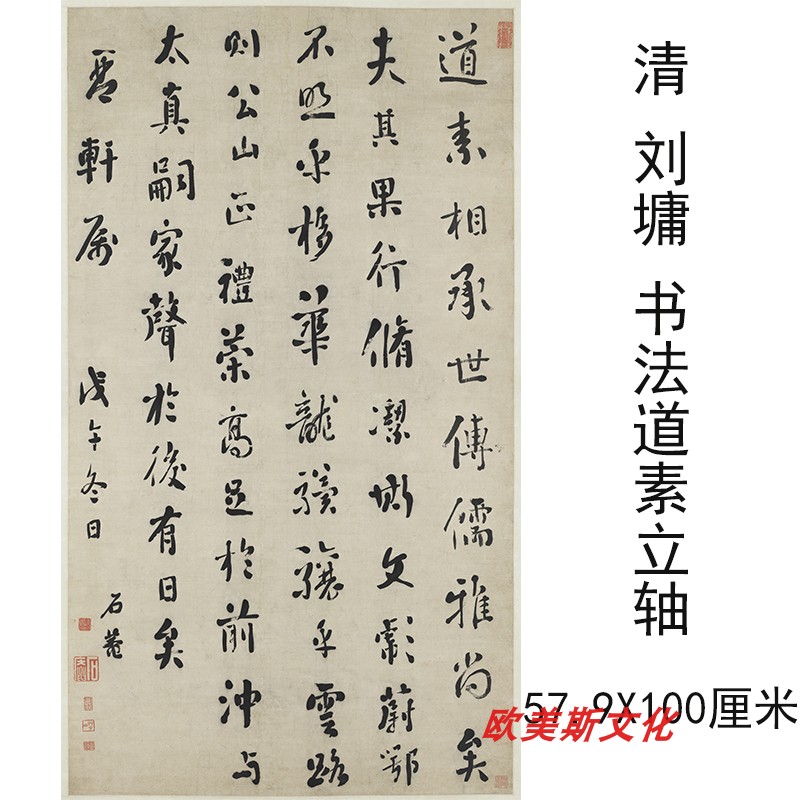 道素相承世傳儒雅尚矣
夫其果行脩潔斯文彪蔚鄂
不照乎棣華龍驥驤乎雲路
則公山正禮策高足於前沖与
太真嗣家聲於後有日矣
軒属 戊午冬日 石菴
清 刘墉 书法道素立轴
57.9X100厘米
欧美斯文化